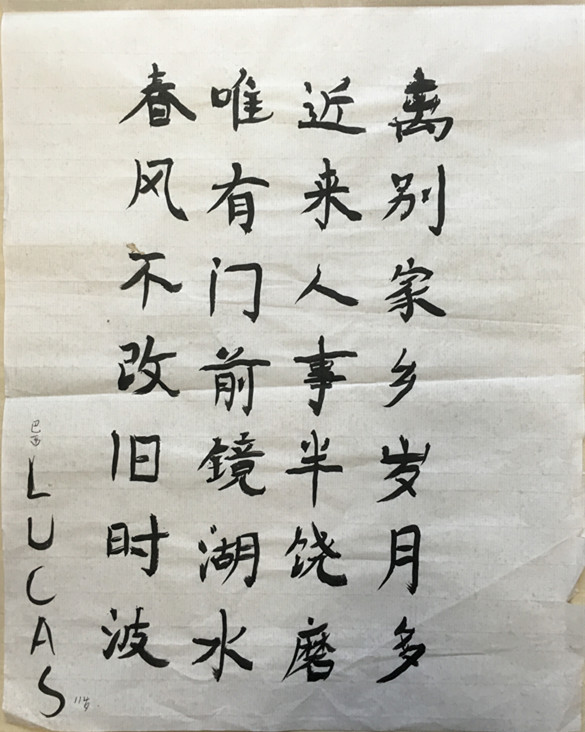 离别家乡岁月多
近来人事半饶磨
唯有门前镜湖水
春风不改旧时波
巴西
LUCAS
11岁